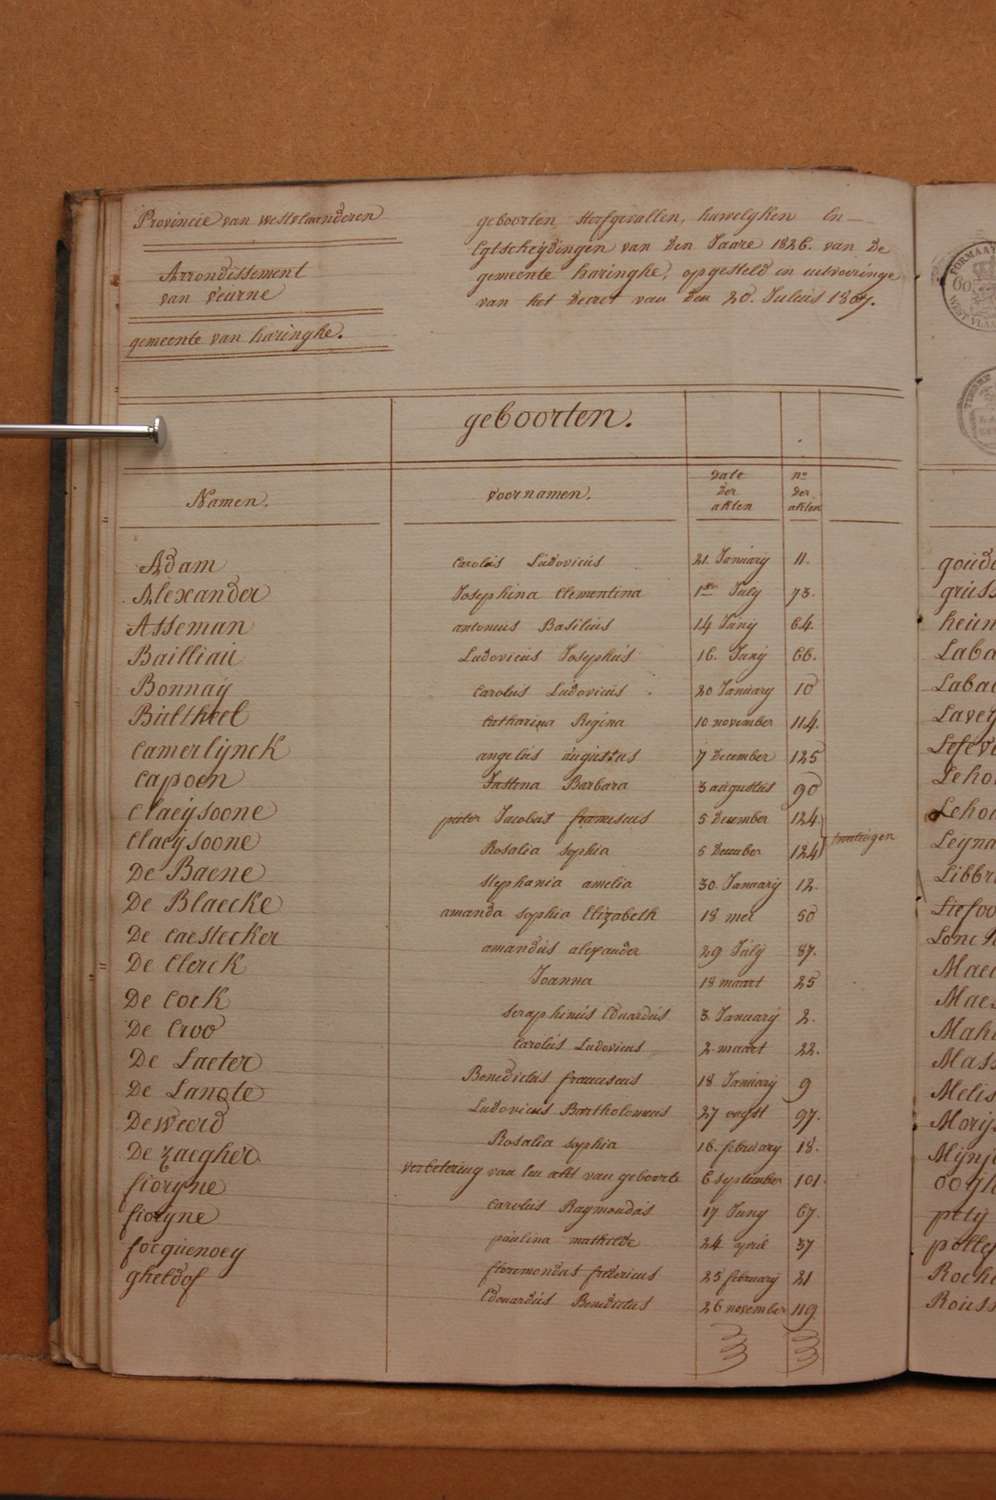 Provincie van Westvlaanderen
Arrondissement
van veurne
gemeente van haringhe.
geboorten sterfgevallen, huwelyken en
Egtscheijdingen van den Jaare 1826. van de
gemeente haringhe, opgesteld in uitvoeringe
van het decret van den 20. Julius 1807.
geboorten.
Namen. voornamen. date der akten no der akten
Adam Carolus Ludovicus 21. January 11.
Alexander Josephina Clementina 1ste July 73.
Asseman antonius Basilius 14 Juny 64.
Bailliaú Ludovicus Josephus 16. Juny 66.
Bonnaÿ Carolus Ludovicus 20 January 10
Bultheel Catharina Regina 10 november 114.
Camerlijnck angelus augustus 7 December 125
Capoen Justina Barbara 3 augustus 90
Claeijsoone pieter Jacobus franciscus 5 December 124
Claeijsoone Rosalia sophia 5 December 124 tweelingen
De Baene stephania amelia 30. January 12.
De Blaecke amanda sophia Elizabeth 18 mei 50
De Caestecker amandus alexander 29 July 87.
De Clerck Joanna 18 maart 25
De Cock seraphinus Eduardus 3. January 2.
De Croo Carolus Ludovicus 2. maart 22.
De Laeter Benedictus franciscus 18 January 9
De Lanote Ludovicus Bartholomeus 27 oogst 97.
Deweerd Rosalia sophia 16. february 18.
De Zaegher verbetering van een akt van geboorte 6 september 101.
fioryne Carolus Raymondus 17 Juny 67.
fioryne paulina mathilde 24 april 37
focquenoey floremondus fredericus 25 february 21
gheldof Edouardus Benedictus 26 november 119